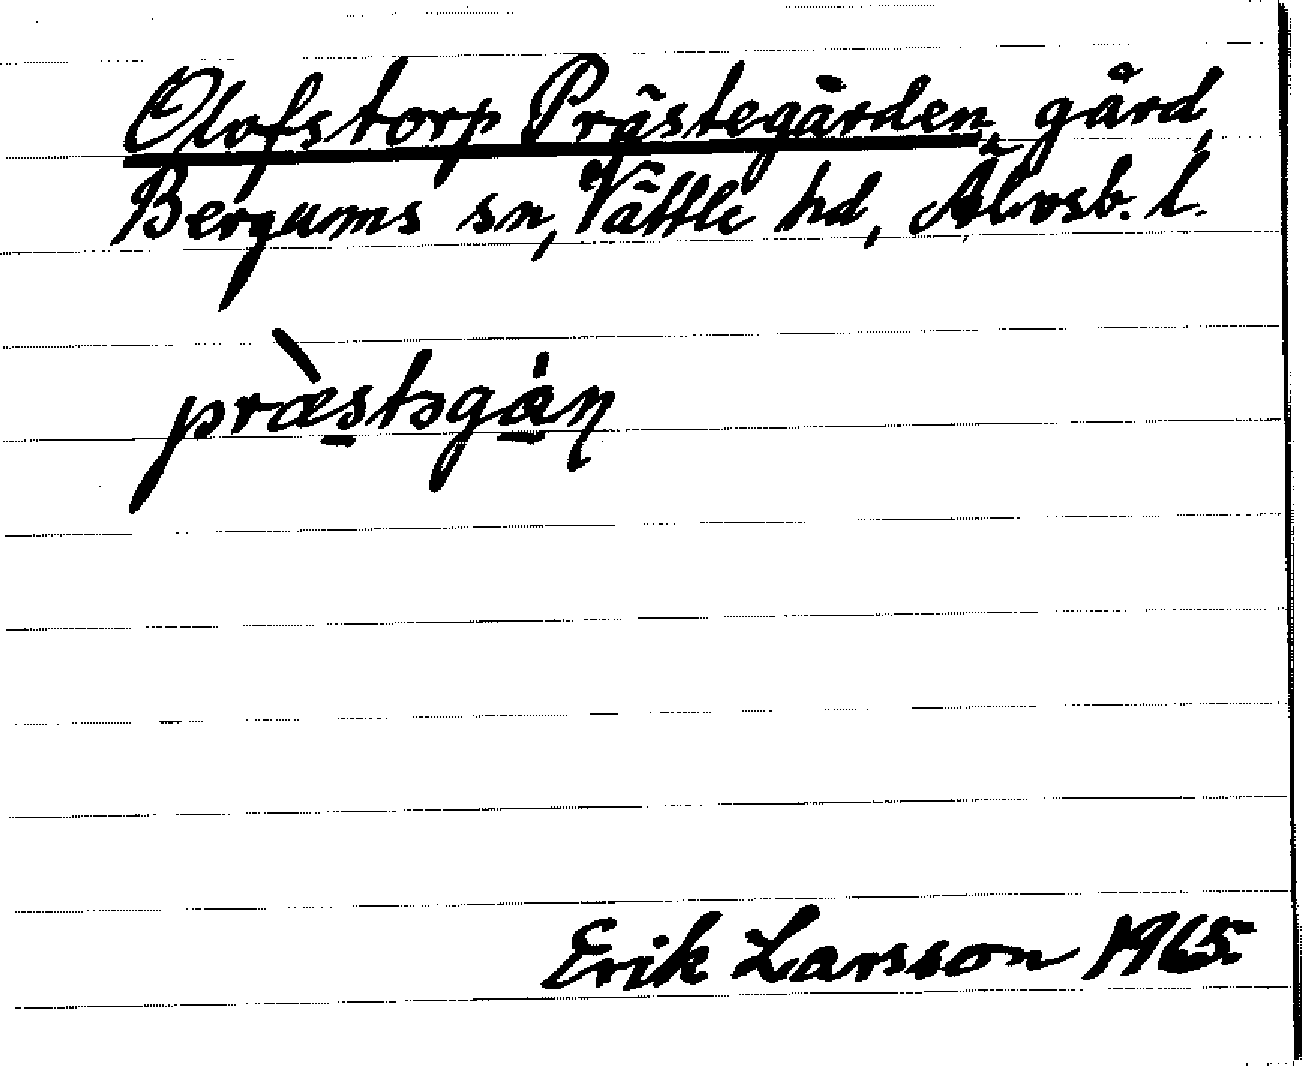 Olofstorp Prästegården, gård,
Bergums sn, Vättle hd, Älvsb. l.
præ̀stəgán
Erik Larsson 1965